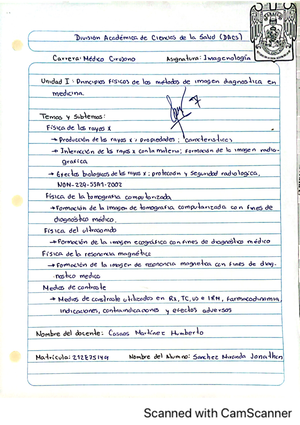 División Académica de Ciencias de la Salud (DACS)
Carrera: Médico Cirujano Asignatura: Imagenología
Unidad I: Principios físicos de los métodos de imagen diagnostica en
medicina.
Temas y Subtemas:
Física de los rayos X
→ Producción de los rayos x; propiedades; características
→ Interacción de los rayos x con la materia; formación de la imagen radio-
grafica
→ Efectos biológicos de los rayos x; protección y seguridad radiológica,
NOM-229-SSA1-2002
Física de la tomografía computarizada
→ Formación de la imagen de tomografía computarizada con fines de
diagnóstico médico.
Física del ultrasonido
→ Formación de la imagen ecográfica con fines de diagnostico médico
Física de la resonancia magnética
→ Formación de la imagen de resonancia magnética con fines de diag-
nostico medico
Medios de contraste
→ Medios de contraste utilizados en RX, TC, US e IRM, farmacodinamia,
indicaciones, contraindicaciones y efectos adversos
Nombre del docente: Casaos Martínez Humberto
Matricula: Nombre del Alumno: Sanchez Jonathan
Scanned with CamScanner